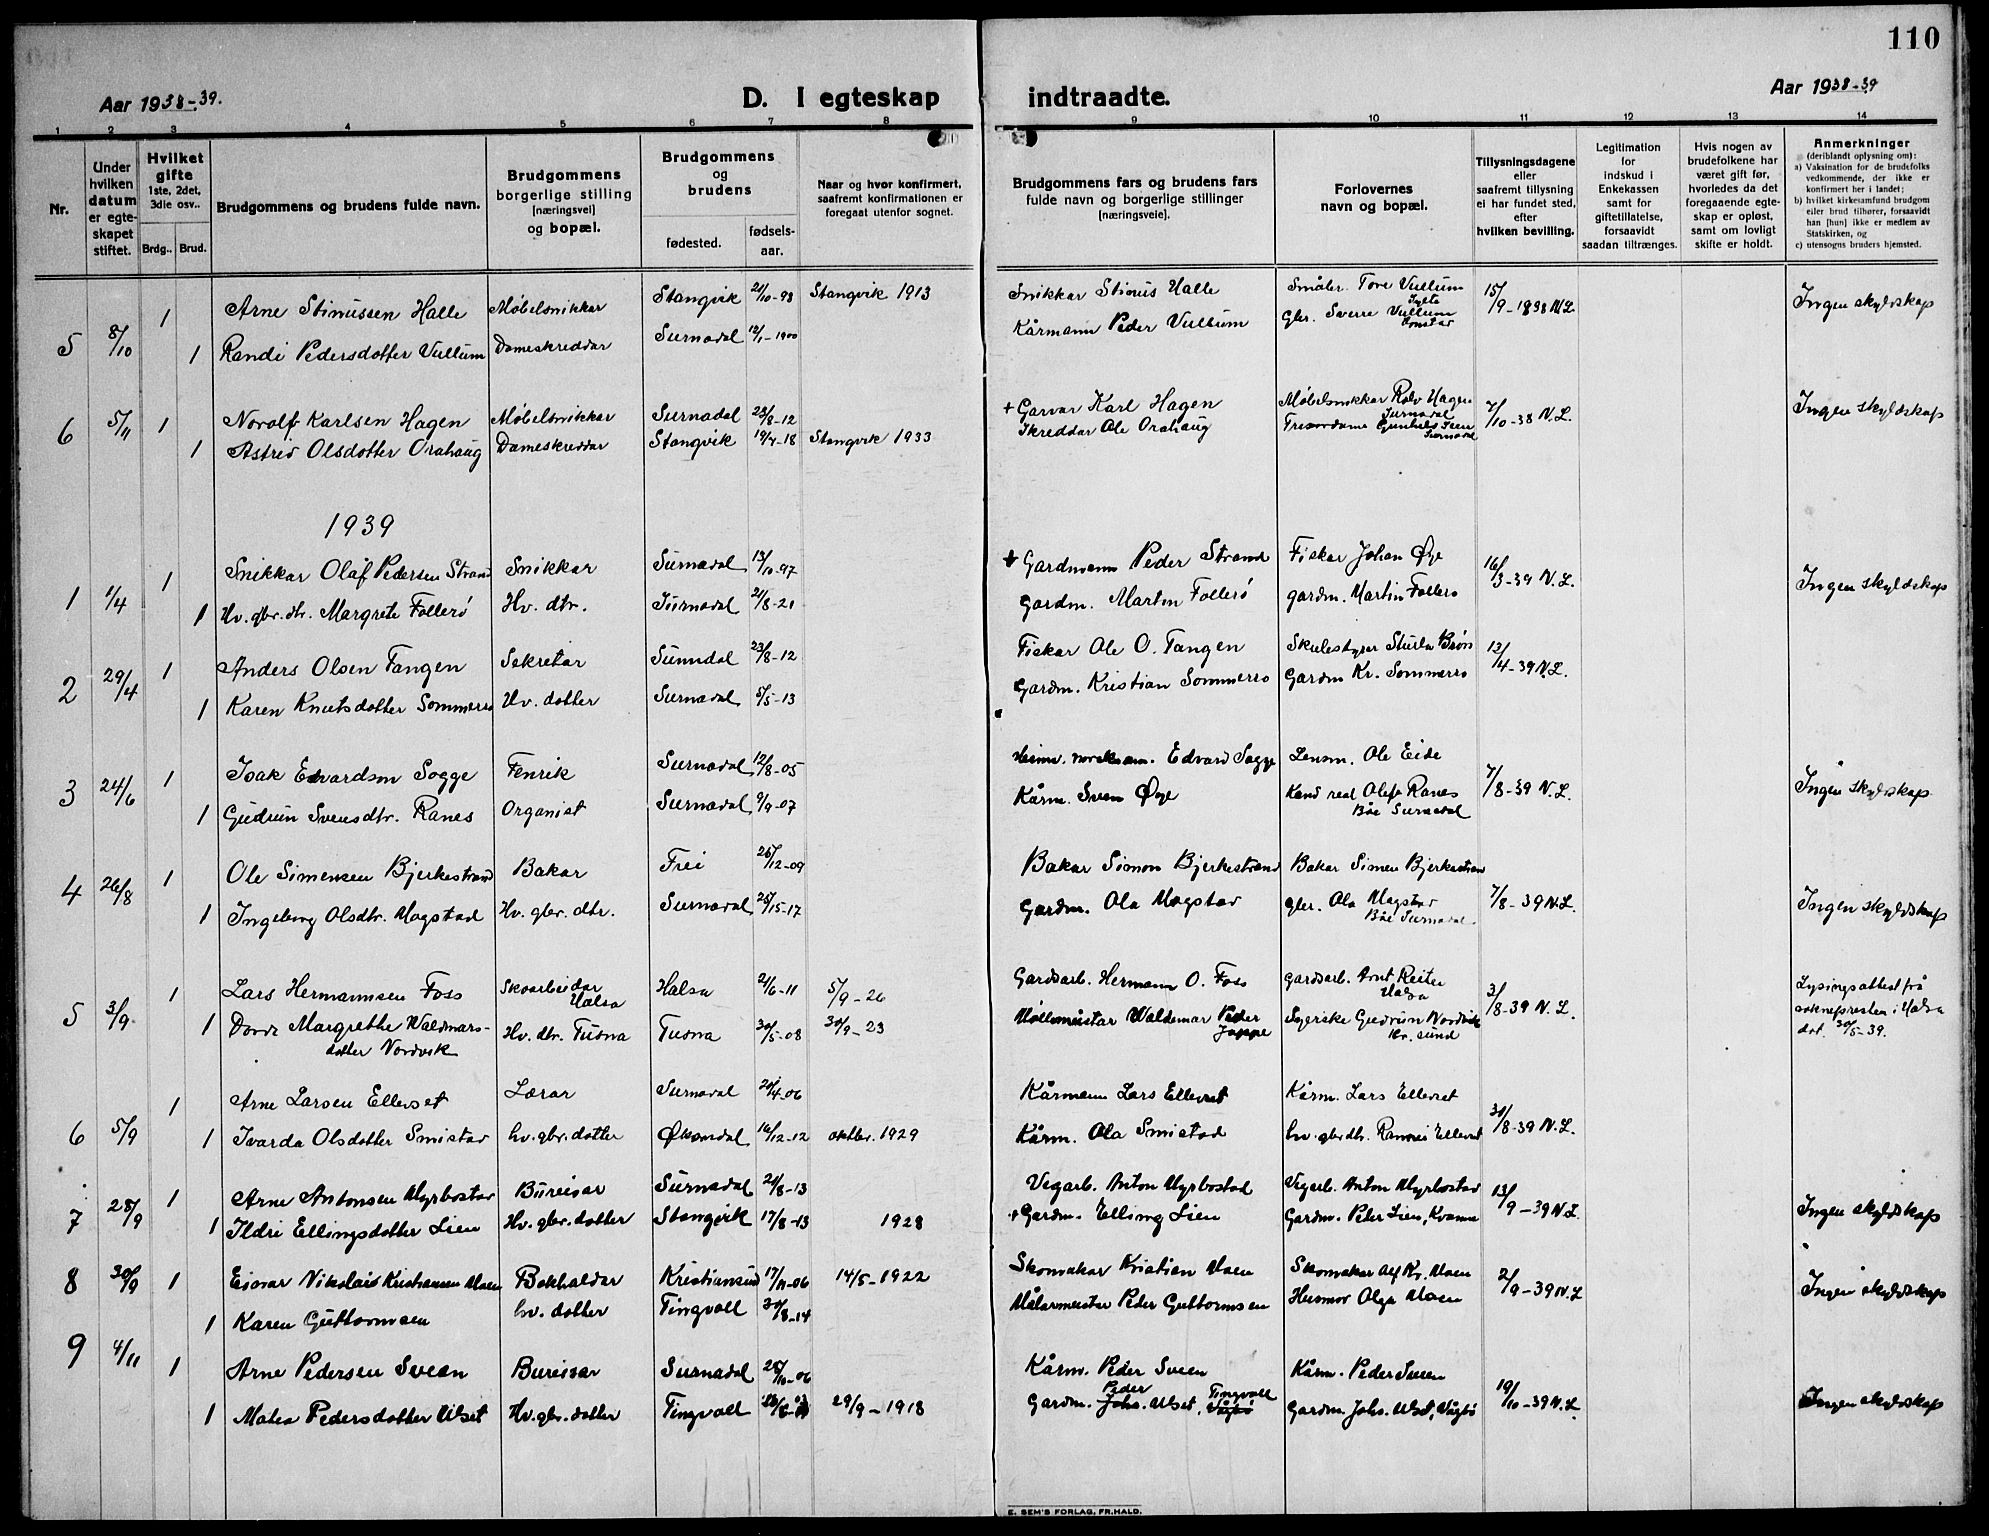 110
Aar 1938-39.
D. I egteskap indtraadte.
Aar 1938-39
1 2 3 4 5 6 7 8 9 10 11 12 13 14
Nr.
Under hvilken datum er egteskapet stiftet.
Hvilket gifte 1ste, 2det, 3die osv..
Brdg.. Brud.
Brudgommens og brudens fulde navn.
Brudgommens borgerlige stilling [næringsvei] og bopæl.
Brudgommens og brudens
fødested.
fødselsaar.
Naar og hvor konfirmert, saafremt konfirmationen er foregaat utenfor sognet.
Brudgommens fars og brudens fars fulde navn og borgerlige stillinger [næringsveie].
Forlovernes navn og bopæl.
Tillysningsdagene eller saafremt tillysning ei har fundet sted, efter hvilken bevilling.
Legitimation for indskud i Enkekassen samt for giftetillatelse, forsaavidt saadan tiltrænges.
Hvis nogen av brudefolkene har været gift før, hvorledes da det foregaaende egteskap er opløst, samt om lovligt skifte er holdt.
Anmerkninger
(deriblandt oplysning om):
a) Vaksination for de brudefolks vedkommende, der ikke er konfirmert her i landet;
b) hvilket kirkesamfund brudgom eller brud tilhører, forsaavidt han [hun] ikke er medlem av Statskirken, og
c) utensogns bruders hjemsted.
5 8/10 1 Arne Stinussen Halle Møbelsnikkar Stangvik 21/10-98 Stangvik 1913 Snikkar Stinus Halle Småbr. Tore Vullum 15/9-1938 N.L. Ingen skyldskap
1 Randi Pedersdotter Vullum Dameskreddar Surnadal 12/1-1900 Kårmann Peder Vullum gbr. Sverre Vullum
6 5/11 1 Norolf Karlsen Hagen Møbelsnikkar Surnadal 23/8-12 + Garvar Karl Hagen Møbelsnikkar Rolv Hagen Surnadal 7/10-38 N.L. Ingen skyldskap
1 Astrid Olsdotter Orahaug Dameskreddar Stangvik 19/4-18 Stangvik 1933 Skreddar Ole Orahaug Surnadal
1939
1 1/4 1 Snikkar Olaf Pedersen Strand Snikkar Surnadal 13/10-97 + Gardmann Peder Strand Fiskar Johan Øye 16/3-39 N.L. Ingen skyldskap
1 Hv. gbr. dtr. Margrete Follerø Hv. dtr. Surnadal 21/8-21 Gardm. Martin Follerø gardm. Martin Follerø
2 29/4 1 Anders Olsen Tangen Sekretar Sunndal 23/8-12 Fiskar Ole O. Tangen Skulestyrer Sturla Brøn 12/4-39 N.L.
1 Karen Knutsdotter Sommerro Hv. dotter Surnadal 5/5-13 Gardm. Kristian Sommerro Gardm Kr. Sommerro
3 24/6 1 Isak Edvardson Sogge Fenrik Surnadal 12/8-05 Edvard Sogge Lensm. Ole Eide 7/8-39 N.L. Ingen skyldskap
1 Gudrun Svensdtr. Ranes Organist Surnadal 9/9-07 Kårm. Sven Øye Kand real Olaf Ranes Båe Surnadal
4 26/8 1 Ole Simensen Bjerkestrand Bakar Frei 26/12-09 Bakar Simon Bjerkestrand Bakar Simen Bjerkestrand 7/8-39 N.L. Ingen skyldskap
1 Ingeborg Olsdtr. Mogstad Hv. gbr. dtr. Surnadal Gardm. Ola Mogstad gbr. Ola Mogstad Båe Surnadal
5 3/9 1 Lars Hermannsen Foss Skoarbeidar Halsa Halsa 21/6-11 5/9-26 Gardsarb. Hermann O. Foss gardsarb. Arnt Reiter Halsa 3/8-39 N.L. Lysingsattest frå soknepresten i Halsa dat. 30/5-39.
1 Margrethe Waldmarsdotter Nordvik Hv. dtr. Tusna Tusna 30/5-08 30/9-23 Møllemeistar Waldemar Peder Syerske Gudrun Nordvik Kr. sund
6 5/9 1 Arne Larsen Ellevset Lærar Surnadal 20/4-06 Kårmann Lars Ellevset Kårm. Lars Ellevset 30/8-39 N.L.
1 Ivarda Olsdotter Smistad hv. gbr. dotter Øksendal 16/12-12 oktbr. 1929 Kårm. Ola Smistad hv. gbr dtr. Ellevset
7 28/9 1 Arne Antonsen Myrbostad Bureisar Surnadal 21/8-13 Vegarb. Anton Myrbostad Vegarb. Anton Myrbostad 13/9-39 N.L. Ingen skyldskap
1 Ildri Ellingsdotter Lien Hv. gbr. dotter Stangvik 17/8-13 1928 + Gardm. Elling Lien Gardm. Peter Lien, Kvanne
8 30/9 1 Einar Nikolais Kristiansen Moen Bokhaldar Kristiansund 17/11-06 14/5-1922 Skomakar Kristian Moen Skomakar Alf Kr. Moen 2/9-39 N.L. Ingen skyldskap
1 Karen Guttormsen hv. dotter Tingvoll 30/8-14 Målarmeister Peder Guttormsen Husmor Olga Moen
9 4/11 1 Arne Pedersen Sveen Bureisar Surnadal 28/10-06 Kårm. Peder Sveen Kårm. Peder Sveen 19/10-39 N.L. Ingen skyldskap
1 Malea Pedersdotter Ulset Hv. gbr. dotter Tingvoll 29/9-1918 Gardm. Peder Johs. Ulset, Tingvoll Vågbø Gardm. Johs. Ulset, Vågbø
E. SEM'S FORLAG, FR.HALD.